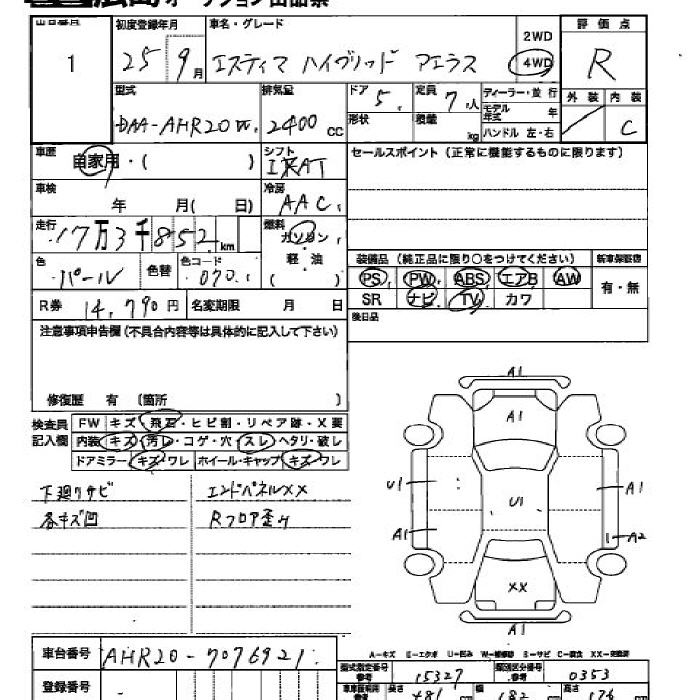 広島 オークション出品票
出品番号 初度登録年月 車名・グレード 2WD 評価点
1 25 9月 エスティマ ハイブリッド アエラス 4WD R
型式 排気量 ドア 5 定員 7人 ディーラー・並行 外装 内装
DAA-AHR20W 2400cc 形状 積載 kg モデル年式 年 ハンドル 左・右 C
車歴 自家用・( ) シフト IRAT セールスポイント(正常に機能するものに限ります)
車検 年 月( 日) 冷房 AAC
走行 17万3千852km 燃料 ガソリン
軽・油 ( )
装備品(純正品に限り○をつけてください) 新車保証書
色 パール 色替 色コード 070 PS PW ABS エアB AW 有・無
R券 14,790円 名変期限 月 日 SR ナビ TV カワ
注意事項申告欄(不具合内容等は具体的に記入して下さい) 後日品
修復歴 有 (箇所 )
検査員記入欄 FW キズ・飛石・ヒビ割・リペア跡・X要
内装 キズ・汚レ・コゲ・穴・スレ・ヘタリ・破レ
ドアミラー キズ・ワレ ホイール・キャップ キズ・ワレ
下廻りサビ エンドパネルXX
各キズ凹 Rフロア歪ミ
A1
A1
U1 U1 A1
A1 A2
XX
A1
A-キズ E-エクボ U-凹み W-補修跡 S-サビ C-腐食 XX-交換済
車台番号 AHR20-7076921
型式指定番号 参考 15327 類別区分番号 参考 0353
登録番号 -
車車証有用 参考 長さ 481 幅 182 高さ 176